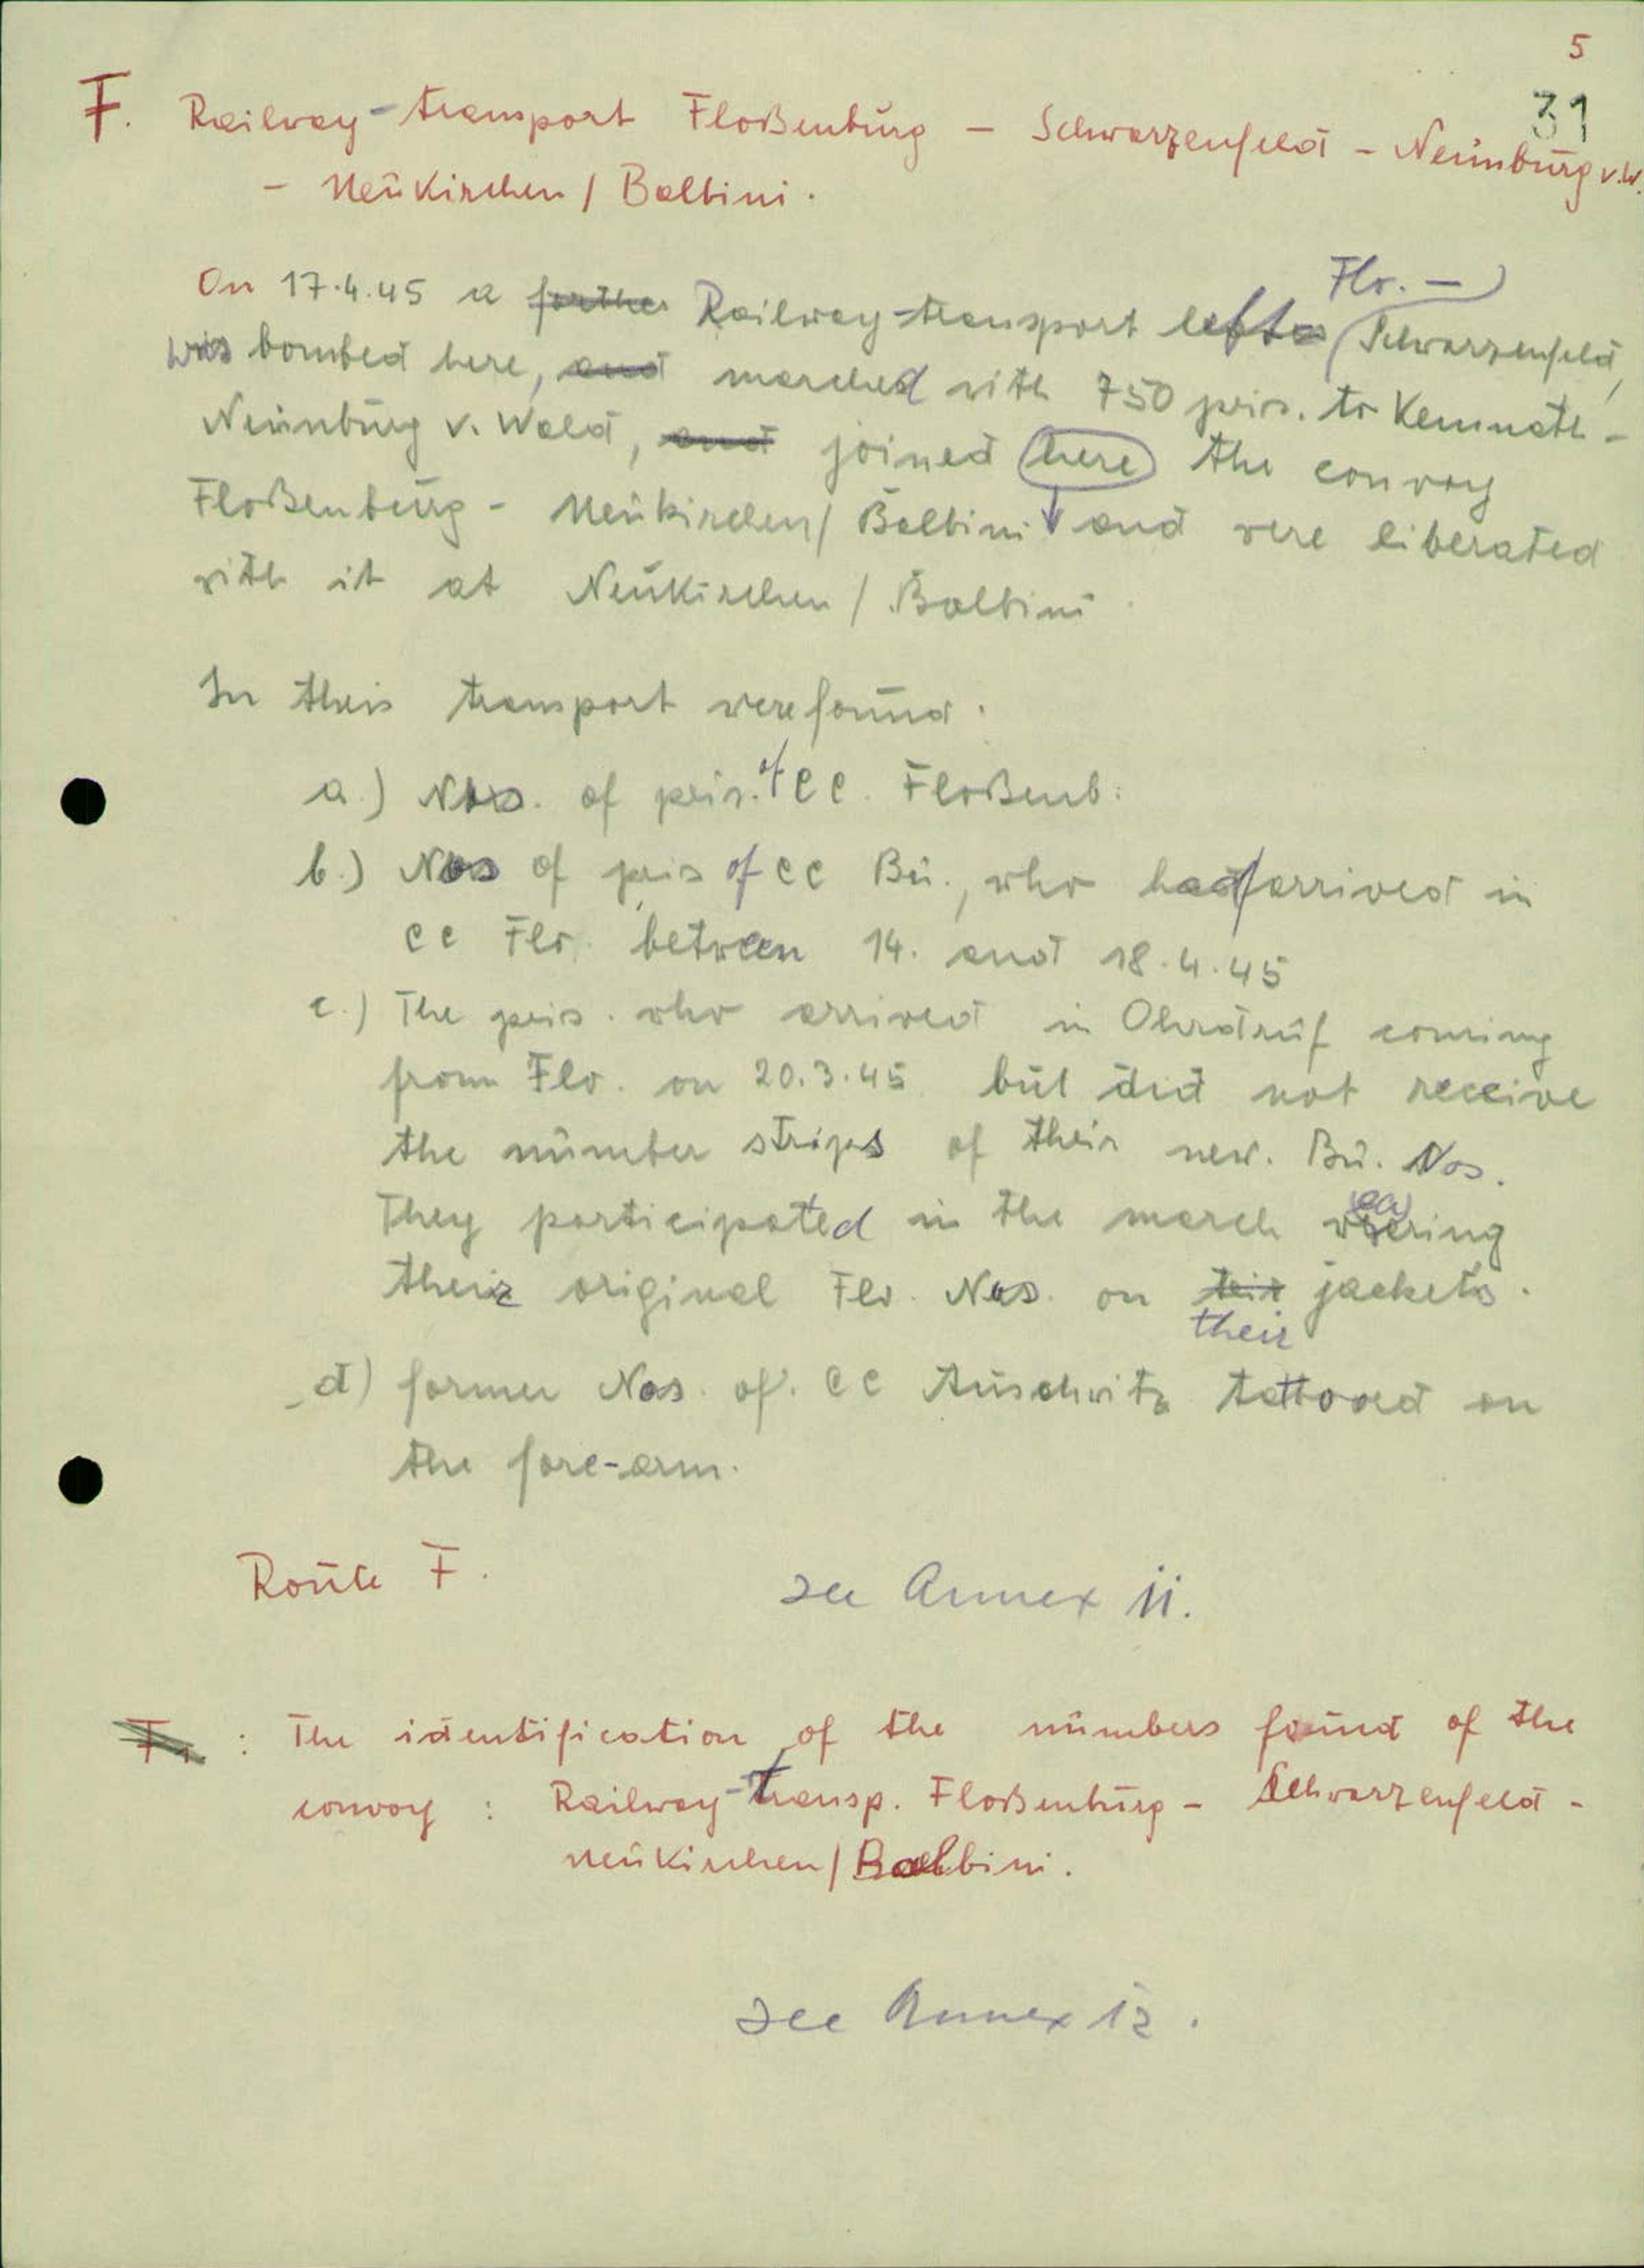 5
31
F. Railway-transport Floßenbürg – Schwarzenfeld – Neunburg v.W.
– Neukirchen / Balbini.
Flo. –
On 17.4.45 a further Railway-transport left Schwarzenfeld,
was bombed here, and marched with 750 pris. to Kemnath –
Neunburg v. Wald, and joined here the convoy
Floßenbürg – Neukirchen / Balbini and were liberated
with it at Neukirchen / Balbini
In this transport were found:
a.) Nos. of pris. of CC. Floßenb.
b.) Nos of pris of CC Bu., who had arrived in
CC Flo. between 14. and 18.4.45
c.) The pris. who arrived in Ohrdruf coming
from Flo. on 20.3.45 but did not receive
the number strips of their new. Bu. Nos.
They participated in the march wearing
their original Flo. Nos. on teir jackets.
their
d) former Nos. of. CC Auschwitz tattooed on
the fore-arm.
Route F. see Annex 11.
: The identification of the numbers found of the
convoy : Railway-Transp. Floßenbürg – Schwarzenfeld –
Neukirchen / Balbini.
see Annex 12.